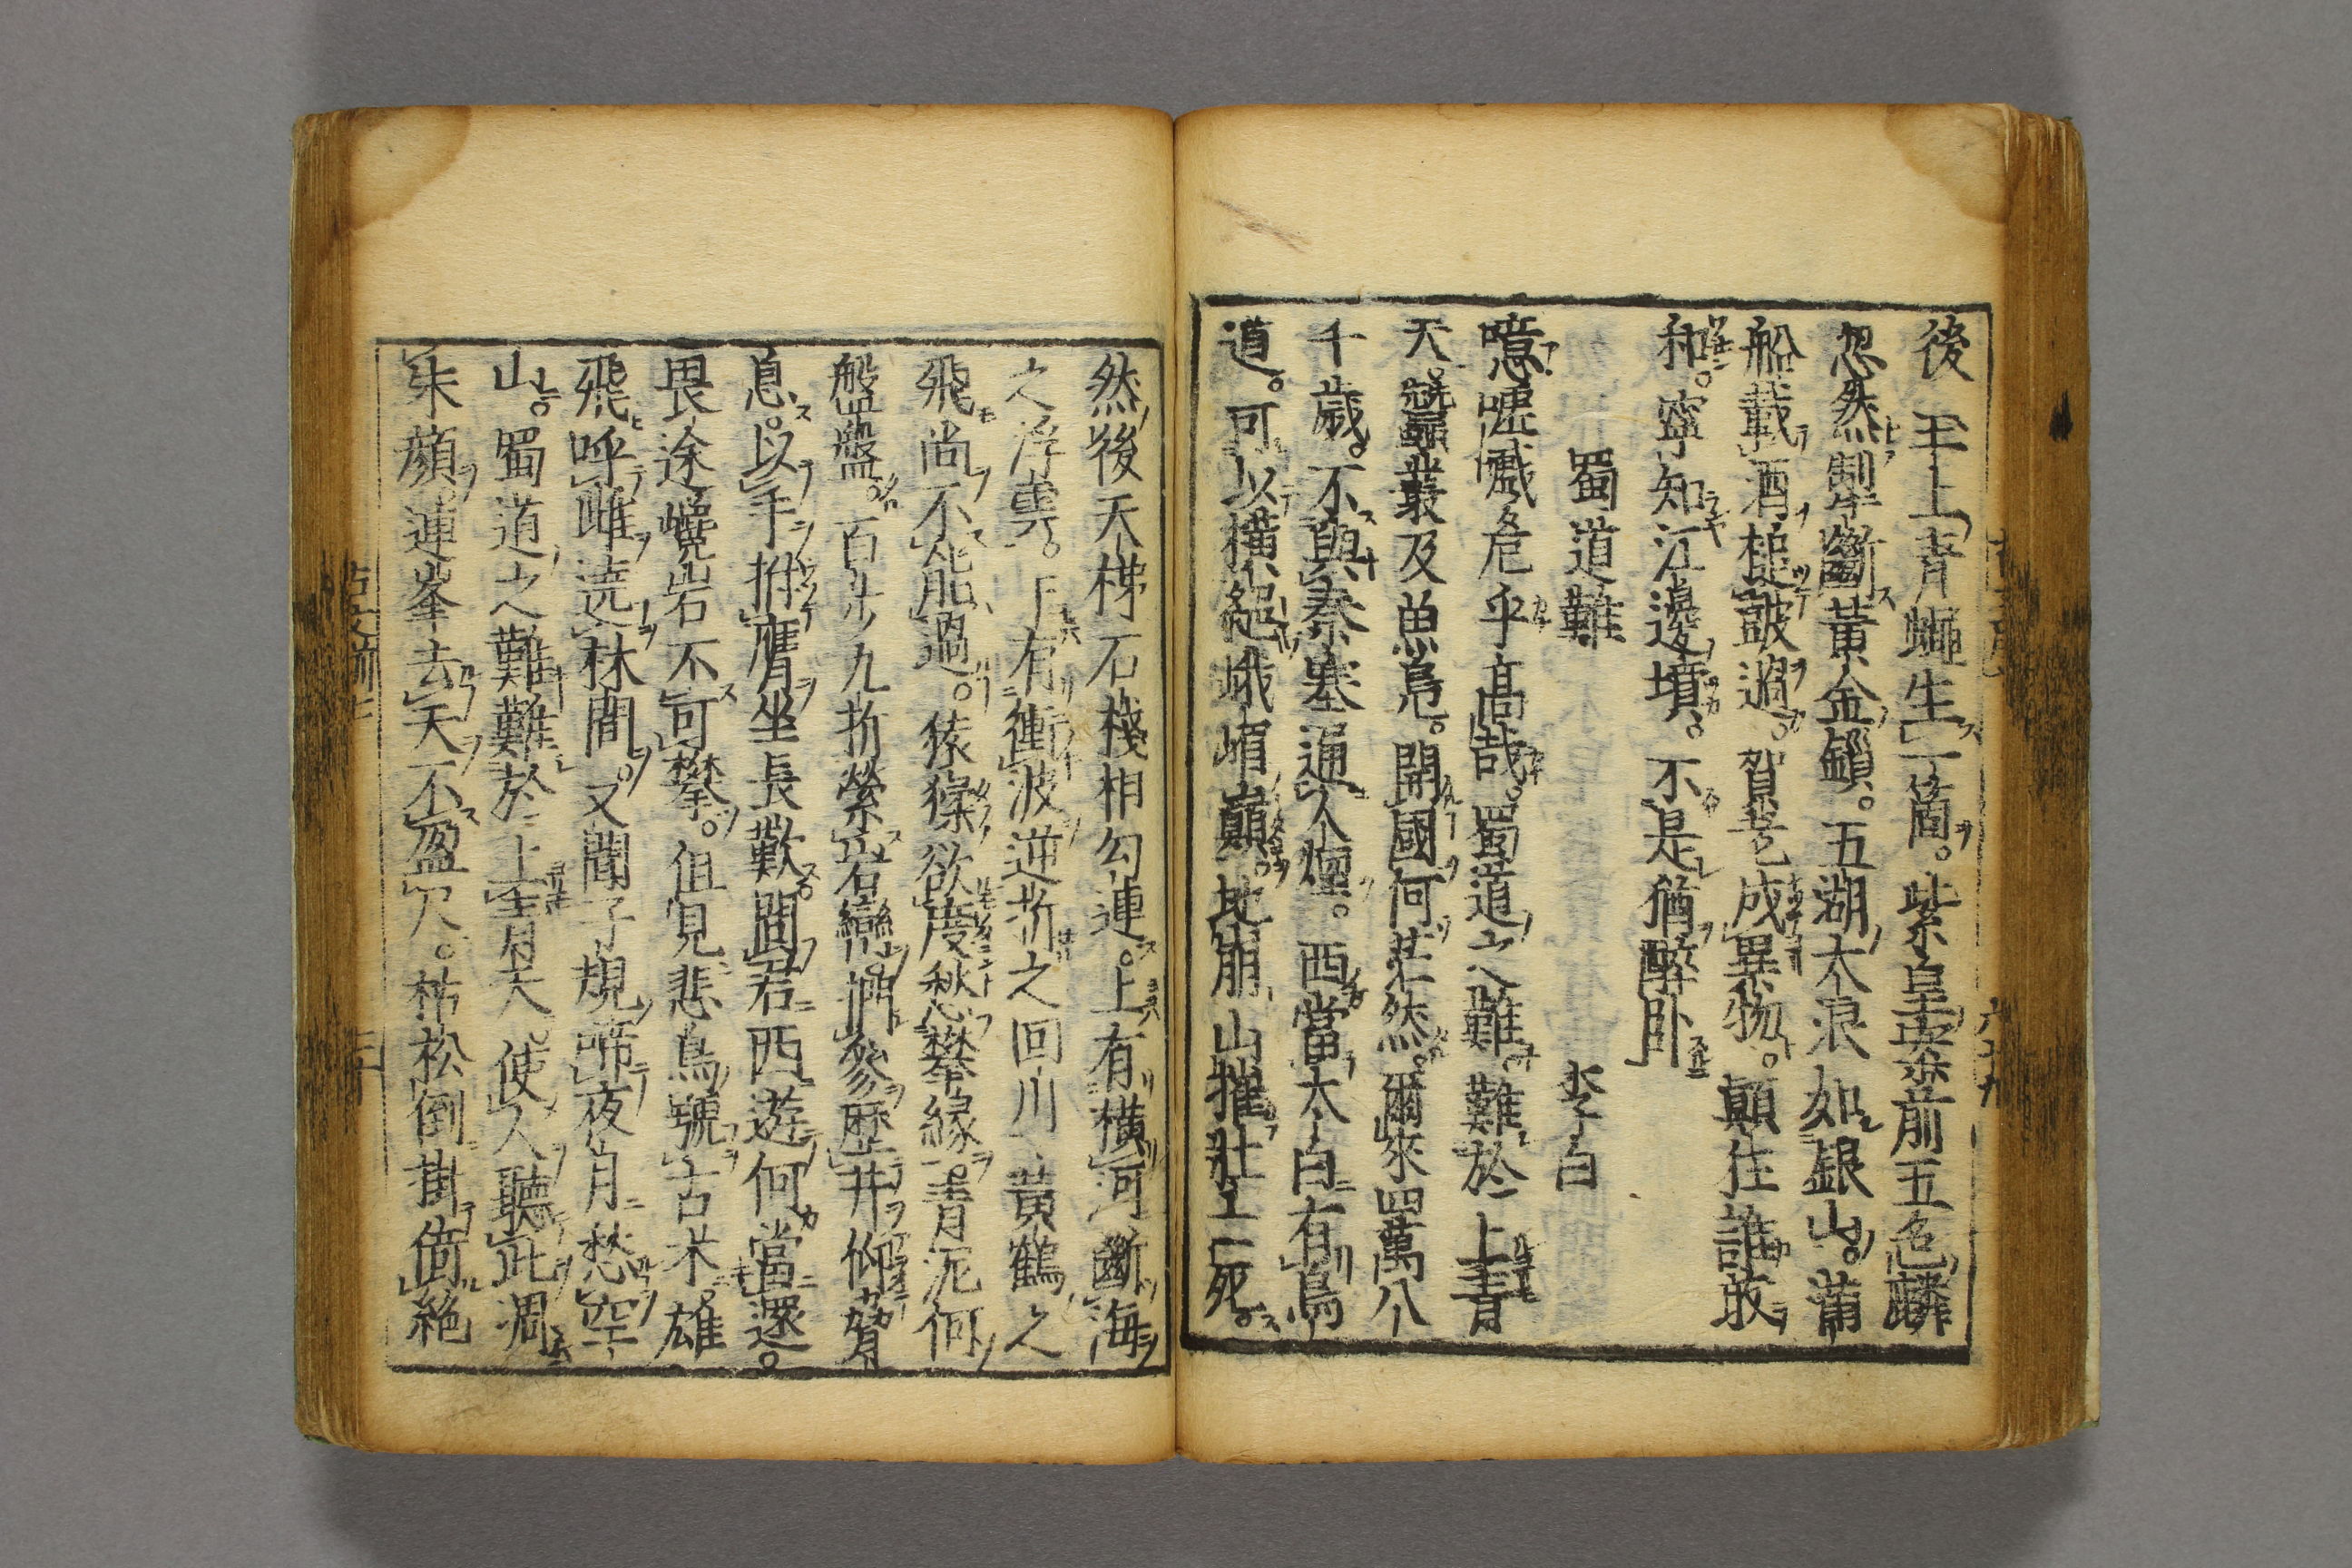 後 玉上青蠅生一箇。紫皇案前五色麟
忽然掣斷黃金鎖。五湖大浪如銀山。滿
船載酒槌皷過。賀老成異物。顛狂誰敢
和。寧知江邊墳。不是猶醉卧
蜀道難 李白
噫嘘嚱危乎高哉。蜀道之難。難於上青
天。蠶叢及魚鳧。開國何茫然。爾來四萬八
千歲。不與秦塞通人煙。西當太白有鳥
道。可以橫絕峨嵋巔。地崩山摧壯士死。
然後天梯石棧相勾連。上有橫河斷海
之浮雲。下有衝波逆折之回川 黃鶴之
飛尚不能過。猿猱欲度愁攀緣。青泥何
盤盤。百步九折縈岩巒。捫參歷井仰脅
息。以手拊膺坐長歎。問君西遊何當還。
畏途巉岩不可攀。但見悲鳥號古木。雄
飛呼雌遶林間。又聞子規啼夜月愁空
山。蜀道之難難於上青天。使人聽此凋
朱顏。連峯去天不盈尺。枯松倒掛倚絕